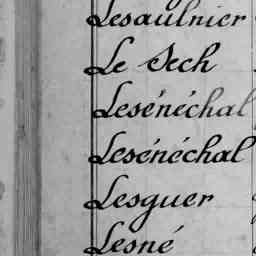 Lesaulnier
Le Sech
Lesénéchal
Lesénéchal
Lesguer
Lesné